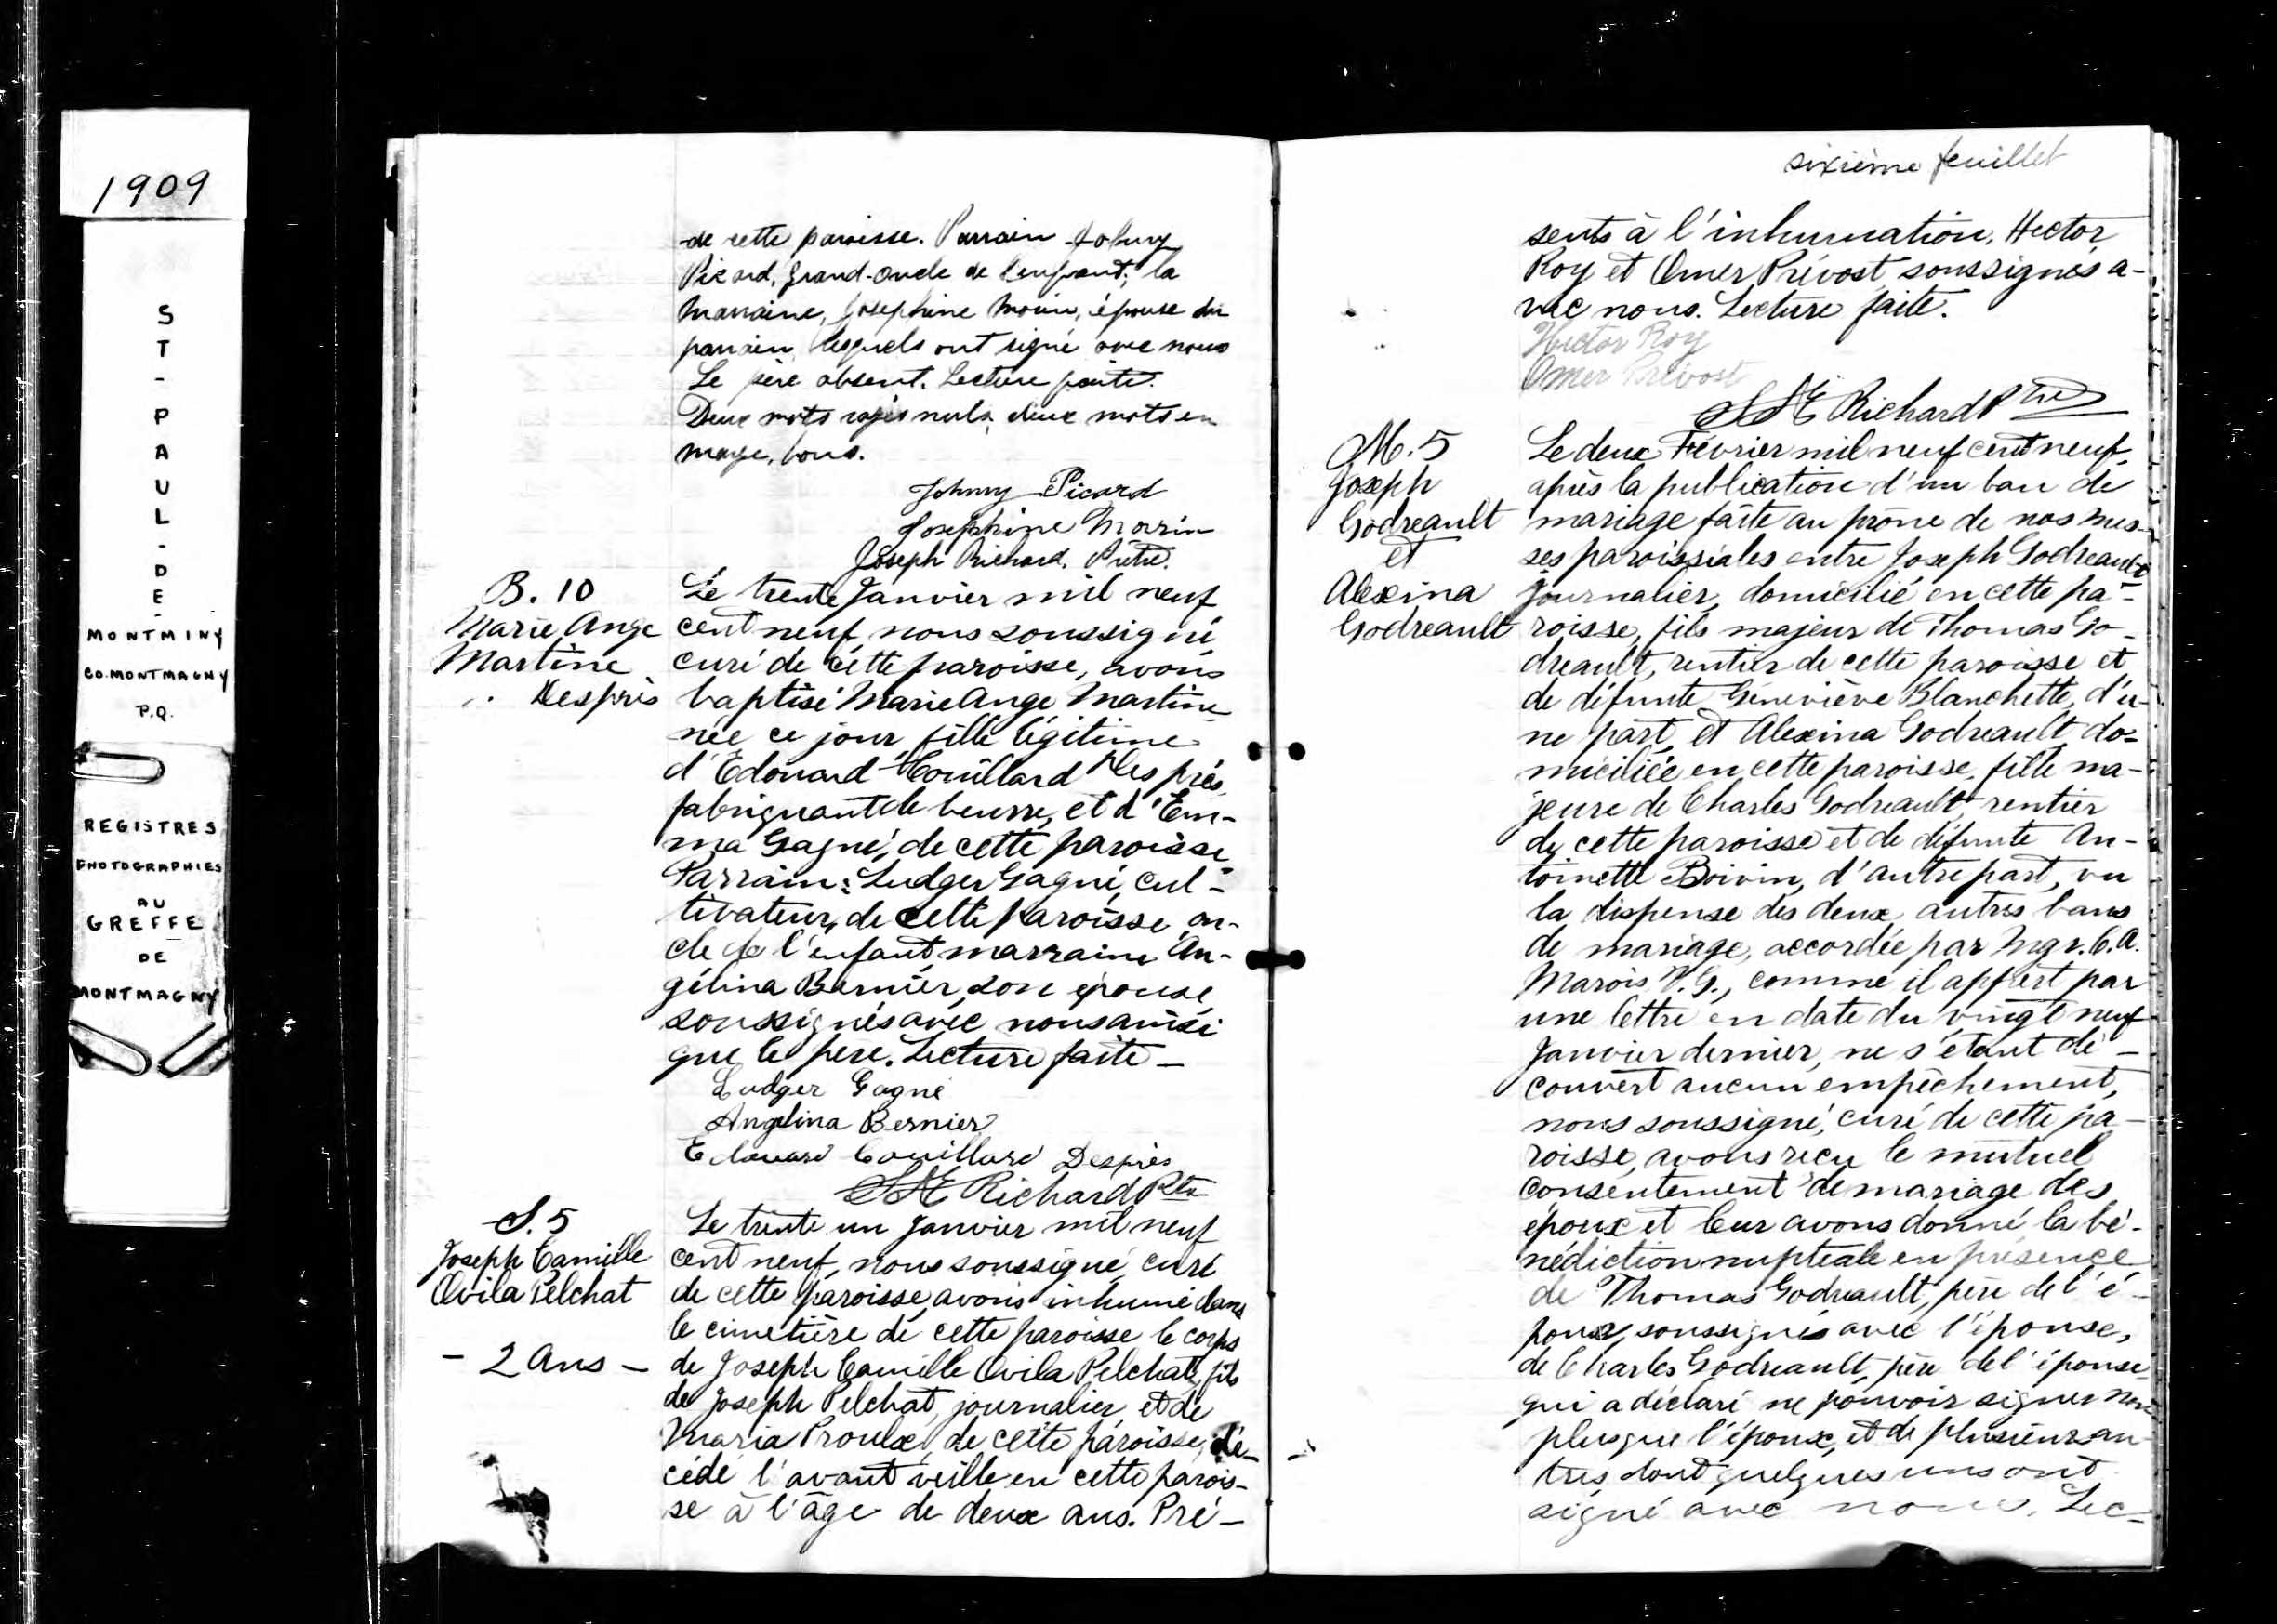 1909
ST-PAUL-DE-
MONTMINY
CO. MONTMAGNY
P.Q.
REGISTRES
PHOTOGRAPHIES
AU
GREFFE
DE
MONTMAGNY
de cette paroisse. Parrain Johnny
Picard, grand-oncle de l'enfant; la
marraine, Josephine Morin, épouse du
parrain lesquels ont signé avec nous
Le père absent. Lecture faite.
Deux mots rayés nuls, deux mots en
marge, bons.
Johnny Picard
Josephine Morrin
Joseph Richard, Prêtre.
B. 10
Marie Ange
Martine
Després
Le trente Janvier mil neuf
cent neuf, nous soussigné
curé de cette paroisse, avons
baptisé Marie Ange Martine
née ce jour, fille légitime
d'Edouard Couillard Després,
fabriquant de beurre, et d'Em-
ma Gagné, de cette paroisse
Parrain: Ludger Gagné, cul-
tivateur, de cette paroisse, on-
cle de l'enfant, marraine An-
gélina Bernier, son épouse,
soussignés avec nous ainsi
que le père. Lecture faite -
Ludger Gagné
Angelina Bernier
Edouard Couillard Després
Richard Ptre
S. 5
Joseph Camille
Ovila Pelchat
- 2 Ans -
Le trente un Janvier mil neuf
cent neuf, nous soussigné, curé
de cette paroisse, avons inhumé dans
le cimetière de cette paroisse le corps
de Joseph Camille Ovila Pelchat, fils
de Joseph Pelchat, journalier et de
Maria Proulx, de cette paroisse, dé-
cédé l'avant veille en cette parois-
se à l'âge de deux ans. Pré-
sixième feuillet
sents à l'inhumation, Hector
Roy et Omer Prévost soussignés a-
vec nous. Lecture faite.
Hector Roy
Omer Prévost
Richard Ptre
M. 5
Joseph
Godreault
et
Alexina
Godreault
Le deux Février mil neuf cent neuf,
après la publication d'un ban de
mariage faite au prône de nos mes-
ses paroissiales entre Joseph Godreault
journalier, domicilié en cette pa-
roisse, fils majeur de Thomas Go-
dreault, rentier de cette paroisse et
de défunte Geneviève Blanchette, d'u-
ne part, et Alexina Godreault, do-
miciliée en cette paroisse, fille ma-
jeure de Charles Godreault, rentier
de cette paroisse et de défunte An-
toinette Boivin, d'autre part, vu
la dispense des deux autres bans
de mariage, accordée par Mgr. C. A.
Marois V. G., comme il appert par
une lettre en date du vingt neuf
Janvier dernier, ne s'étant dé-
couvert aucun empêchement,
nous soussigné, curé de cette pa-
roisse, avons reçu le mutuel
consentement de mariage des
époux et leur avons donné la bé-
nédiction nuptiale en présence
de Thomas Godreault, père de l'é-
poux, soussignés avec l'épouse,
de Charles Godreault, père de l'épouse
qui a déclaré ne pouvoir signer non
plus que l'époux, et de plusieurs au-
tres, dont quelques uns ont
signé avec nous. Lec-